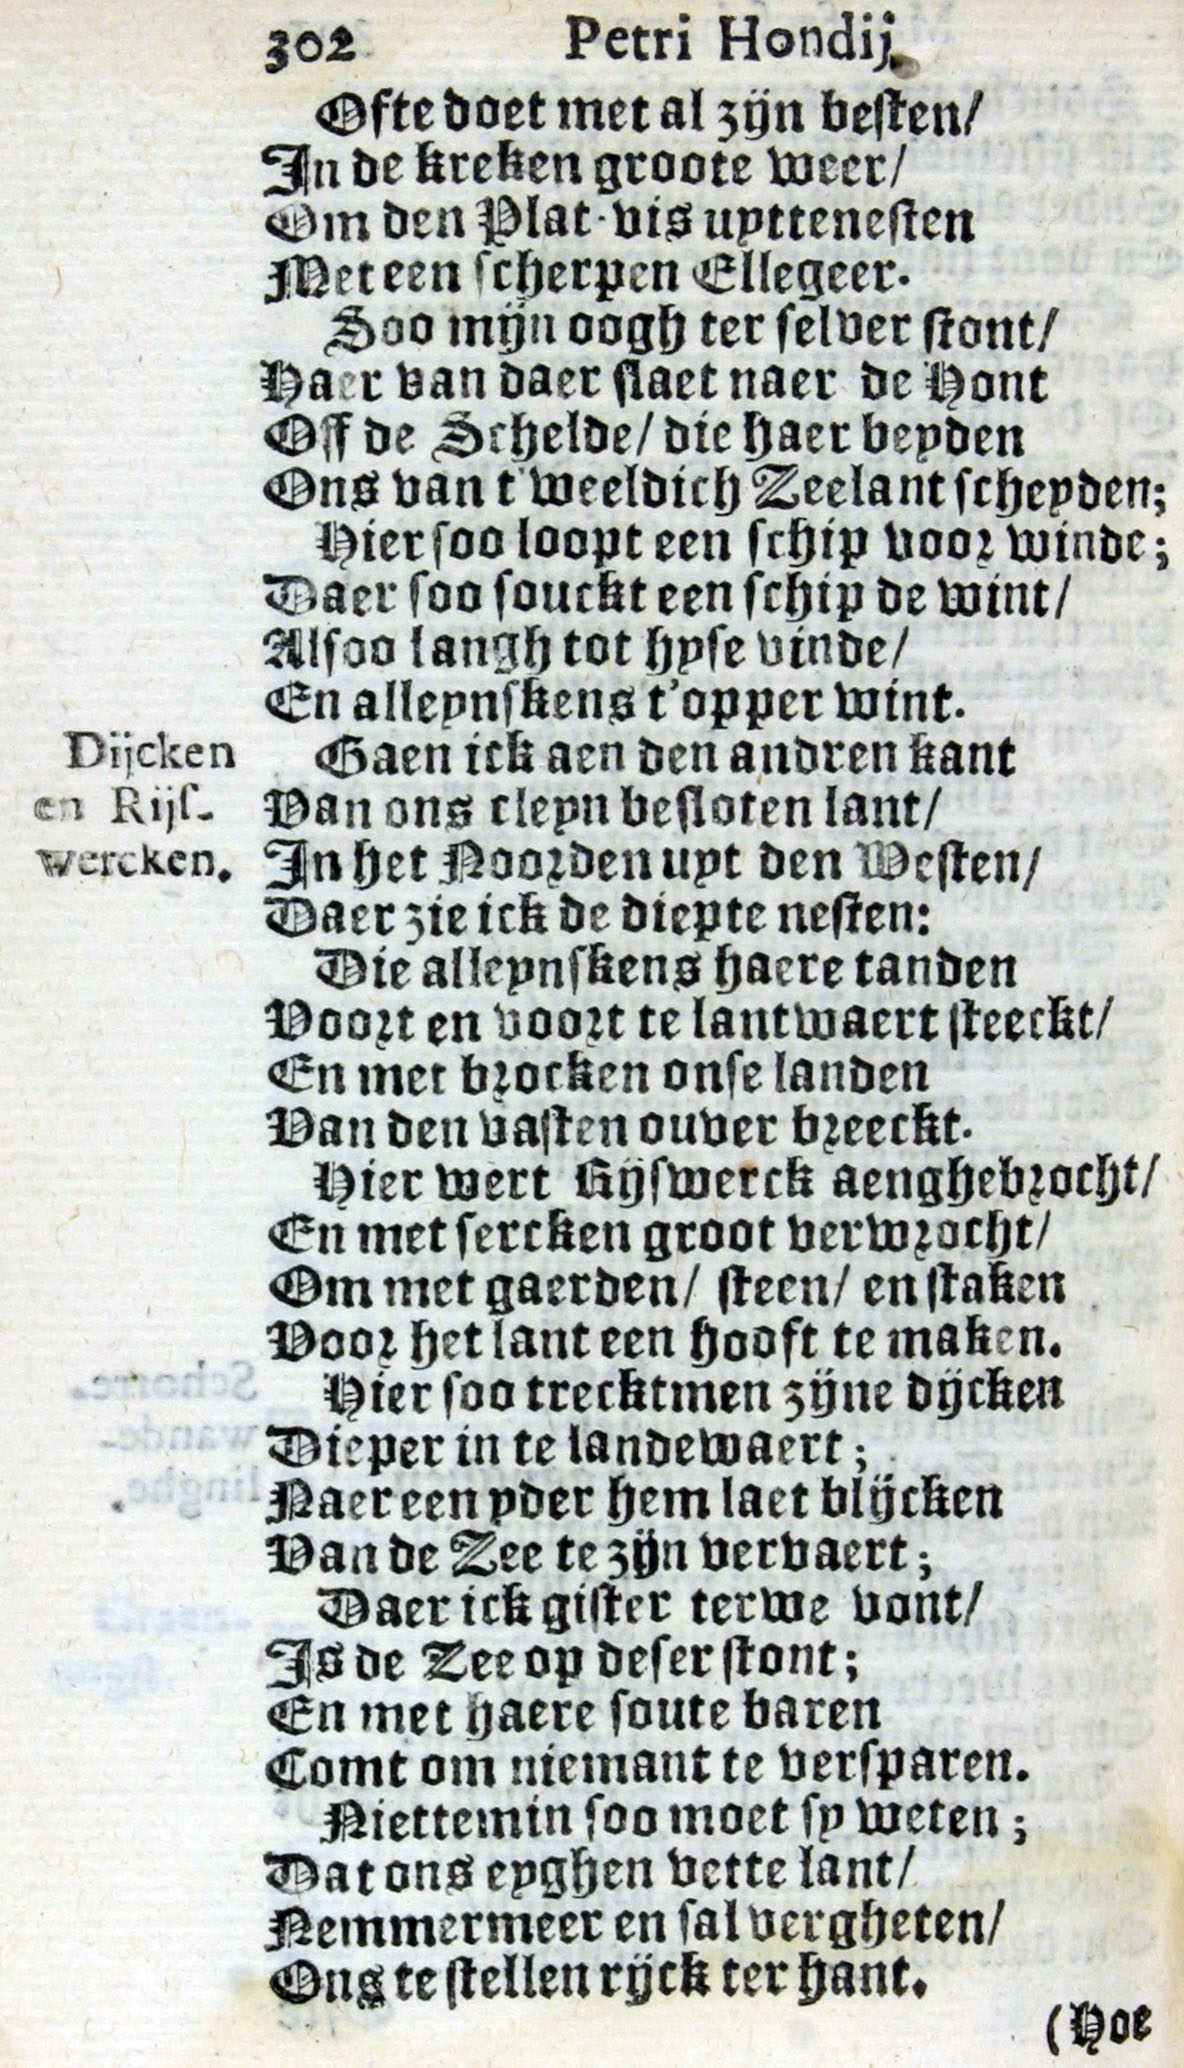 302 Petri Hondij.
Ofte doet met al zijn besten/
In de kreken groote weer/
Om den Plat-vis uyttenesten
Met een scherpen Ellegeer.
Soo mijn oogh ter selver stont/
Haer van daer slaet naer de Hont
Off de Schelde/ die haer beyden
Ons van t'weeldich Zeelant scheyden;
Hier soo loopt een schip voor winde;
Daer soo souckt een schip de wint/
Alsoo langh tot hyse vinde/
En alleynskens t'opper wint.
Dijcken
en Rijs-
wercken.
Gaen ick aen den andren kant
Van ons cleyn besloten lant/
In het Noorden uyt den Westen/
Daer zie ick de diepte nesten:
Die alleynskens haere tanden
Voort en voort te lantwaert steeckt/
En met brocken onse landen
Van den vasten ouver breeckt.
Hier wert Rijswerck aenghebrocht/
En met sercken groot verwrocht/
Om met gaerden/ steen/ en staken
Voor het lant een hooft te maken.
Hier soo trecktmen zijne dijcken
Dieper in te landewaert;
Naer een yder hem laet blijcken
Van de Zee te zijn vervaert;
Daer ick gister terwe vont/
Is de Zee op deser stont;
En met haere soute baren
Comt om niemant te versparen.
Niettemin soo moet sy weten;
Dat ons eyghen vette lant/
Nemmermeer en sal vergheten/
Ons te stellen rijck ter hant.
(Hoe